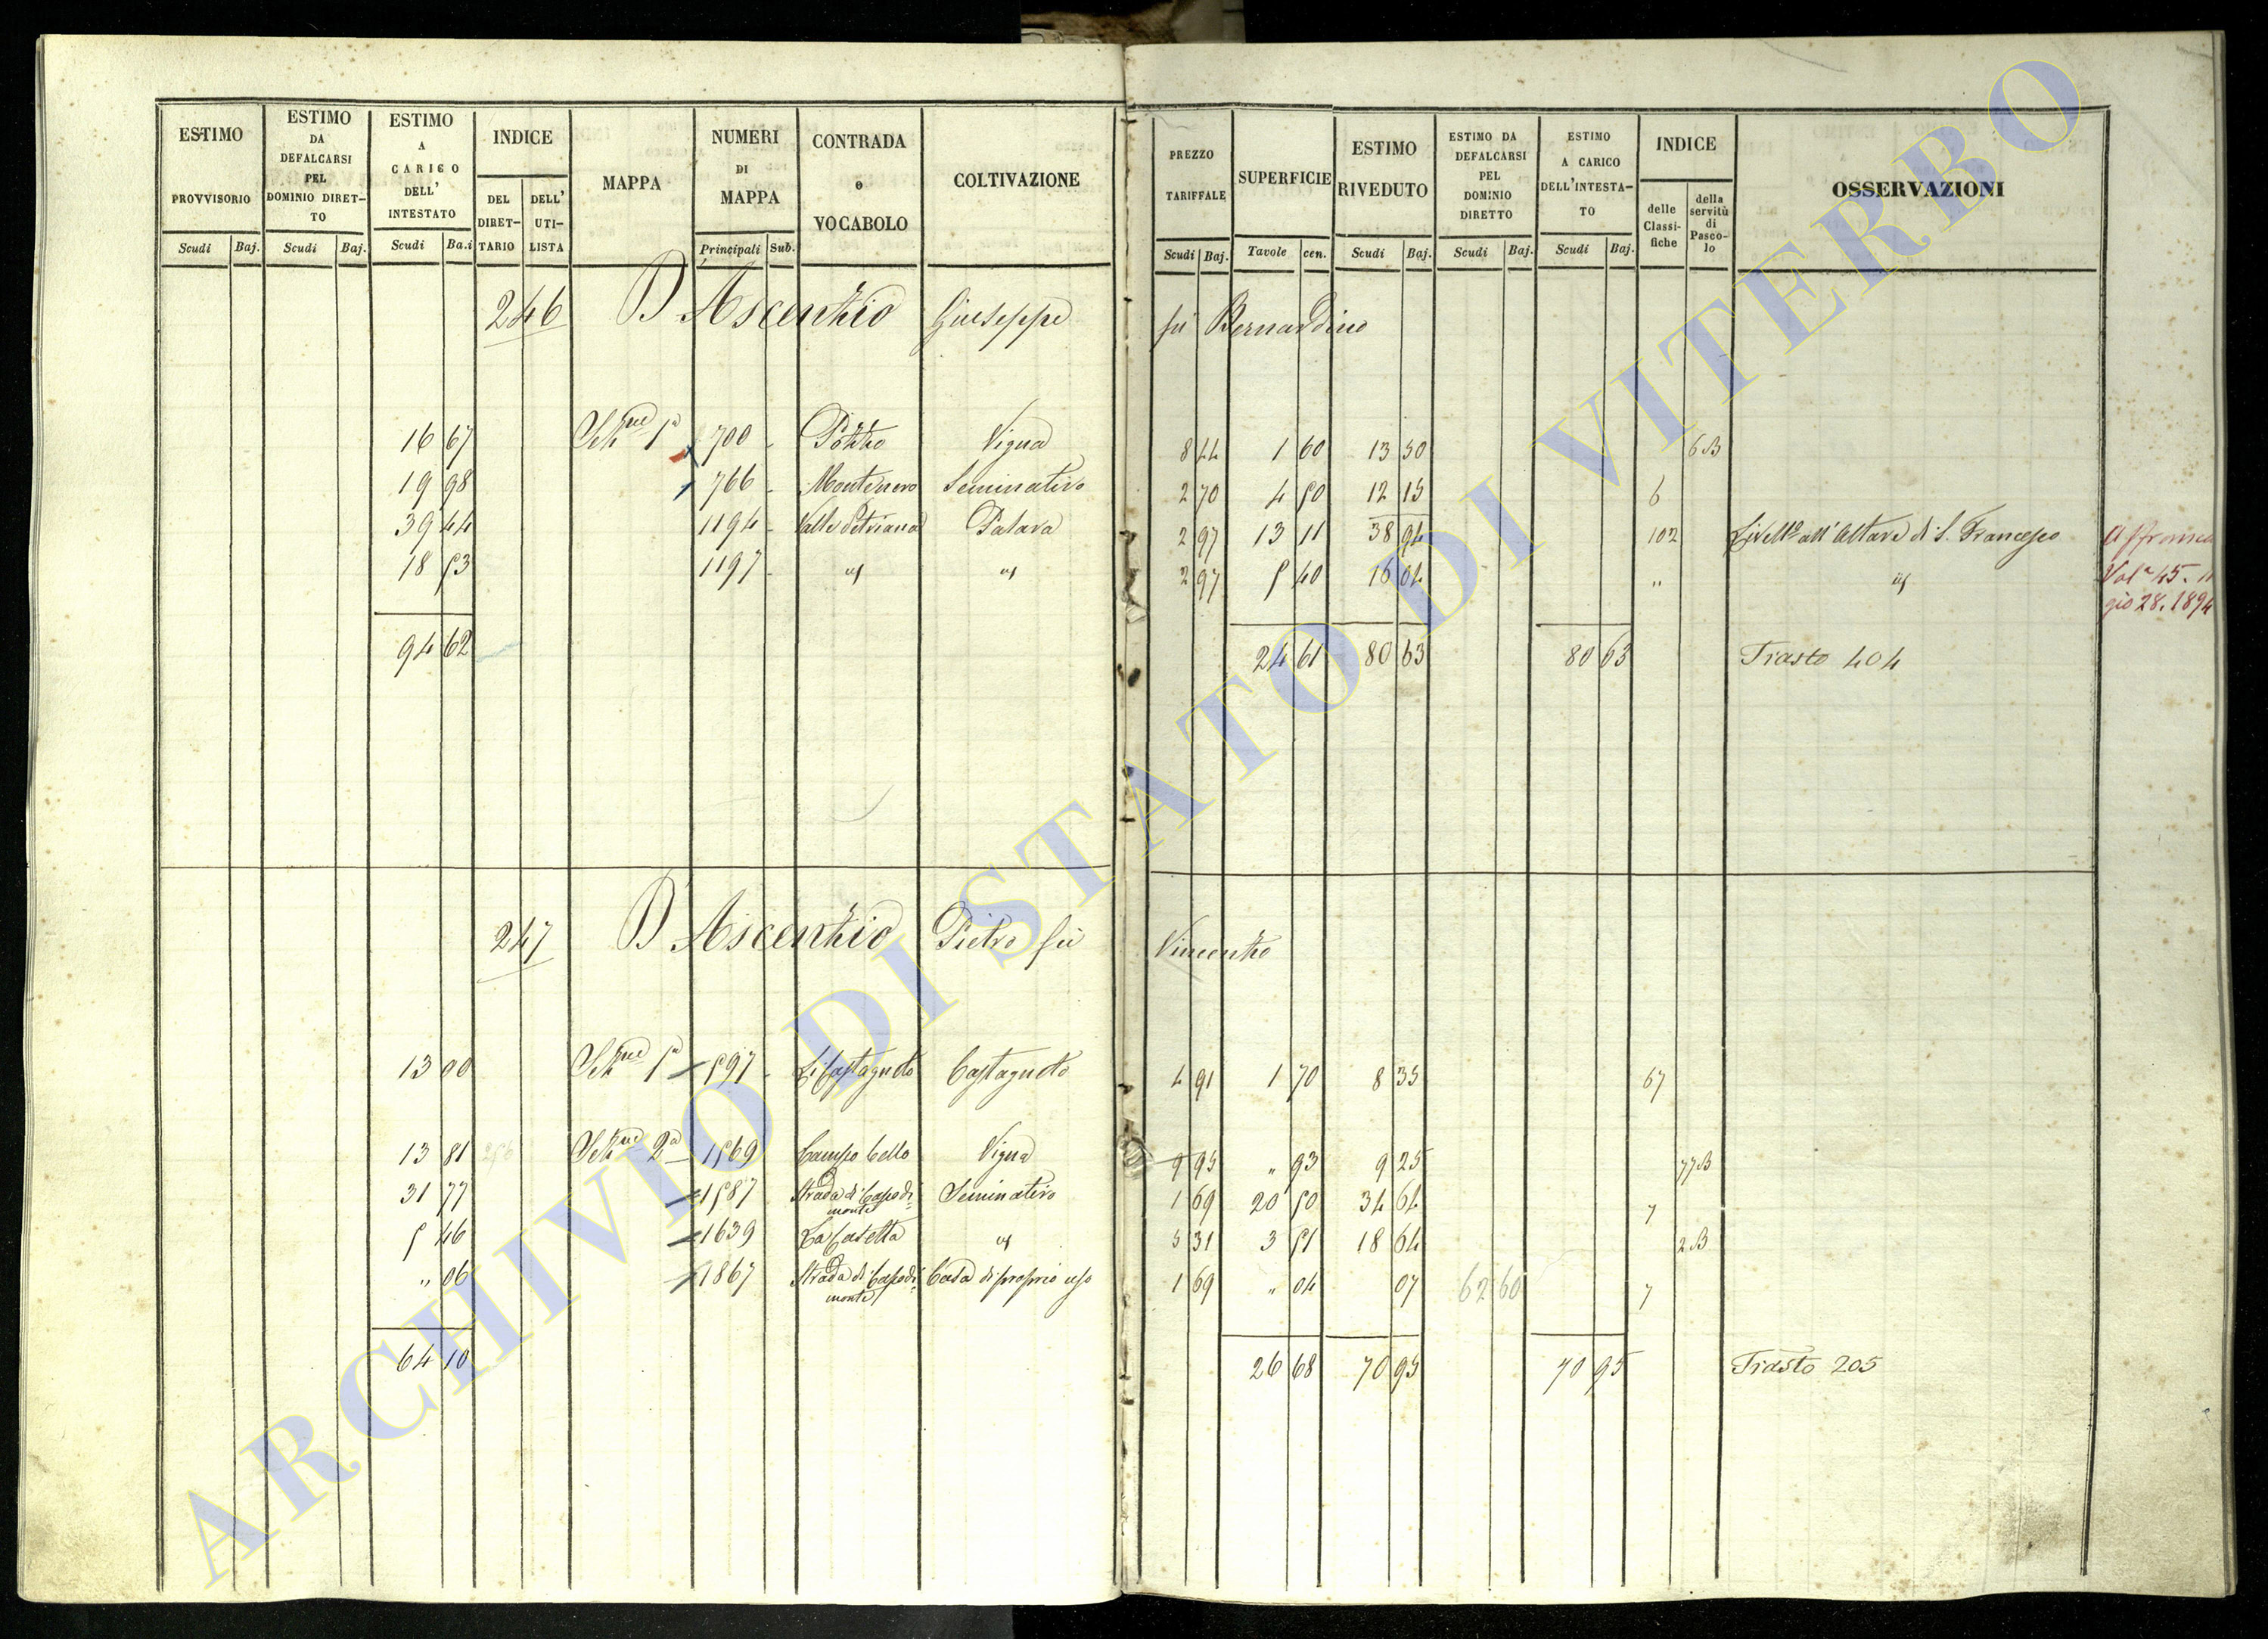 ESTIMO PROVVISORIO Scudi Baj.
ESTIMO DA DEFALCARSI PEL DOMINIO DIRET-TO Scudi Baj.
ESTIMO A CARICO DELL' INTESTATO Scudi Ba.i
INDICE DEL DIRET-TARIO DELL' UTI-LISTA
MAPPA
NUMERI DI MAPPA Principali Sub.
CONTRADA e VOCABOLO
COLTIVAZIONE
PREZZO TARIFFALE Scudi Baj.
SUPERFICIE Tavole cen.
ESTIMO RIVEDUTO Scudi Baj.
ESTIMO DA DEFALCARSI PEL DOMINIO DIRETTO Scudi Baj.
ESTIMO A CARICO DELL'INTESTA-TO Scudi Baj.
INDICE delle Classi-fiche della servitù di Pasco-lo
OSSERVAZIONI
246 D'Ascentio Giuseppe fù Bernardino
16 67 Sez.ne 1a 700 - Pozzo Vigna 8 44 1 60 13 50 6 B
19 98 766 - Montenero Seminativo 2 70 4 50 12 15 6
39 44 1194 - Valle Petriana 2 97 13 11 38 94 102 Livello all'Altare di S. Francesco
18 53 1197 - " " 2 97 5 40 16 04 " "
94 62 24 61 80 63 80 63 Trasto 404
28. 1894
247 D'Ascentio Pietro fù Vincenzo
13 00 Sez.ne 1a 597 - Li Castagneto Castagneto 4 91 1 70 8 35 67
13 81 256 Sez.ne 2a 1569 Campo bello Vigna 9 95 " 93 9 25 77 B
31 77 1587 Strada di Capodi=monte Seminativo 1 69 20 50 34 64 7
5 46 1639 La Casetta " 5 31 3 51 18 64 2 B
" 06 1867 Strada di Capodi=monte Casa di proprio uso 1 69 " 04 07 62 60 7
64 10 26 68 70 95 70 95 Trasto 205
ARCHIVIO DI STATO DI VITERBO